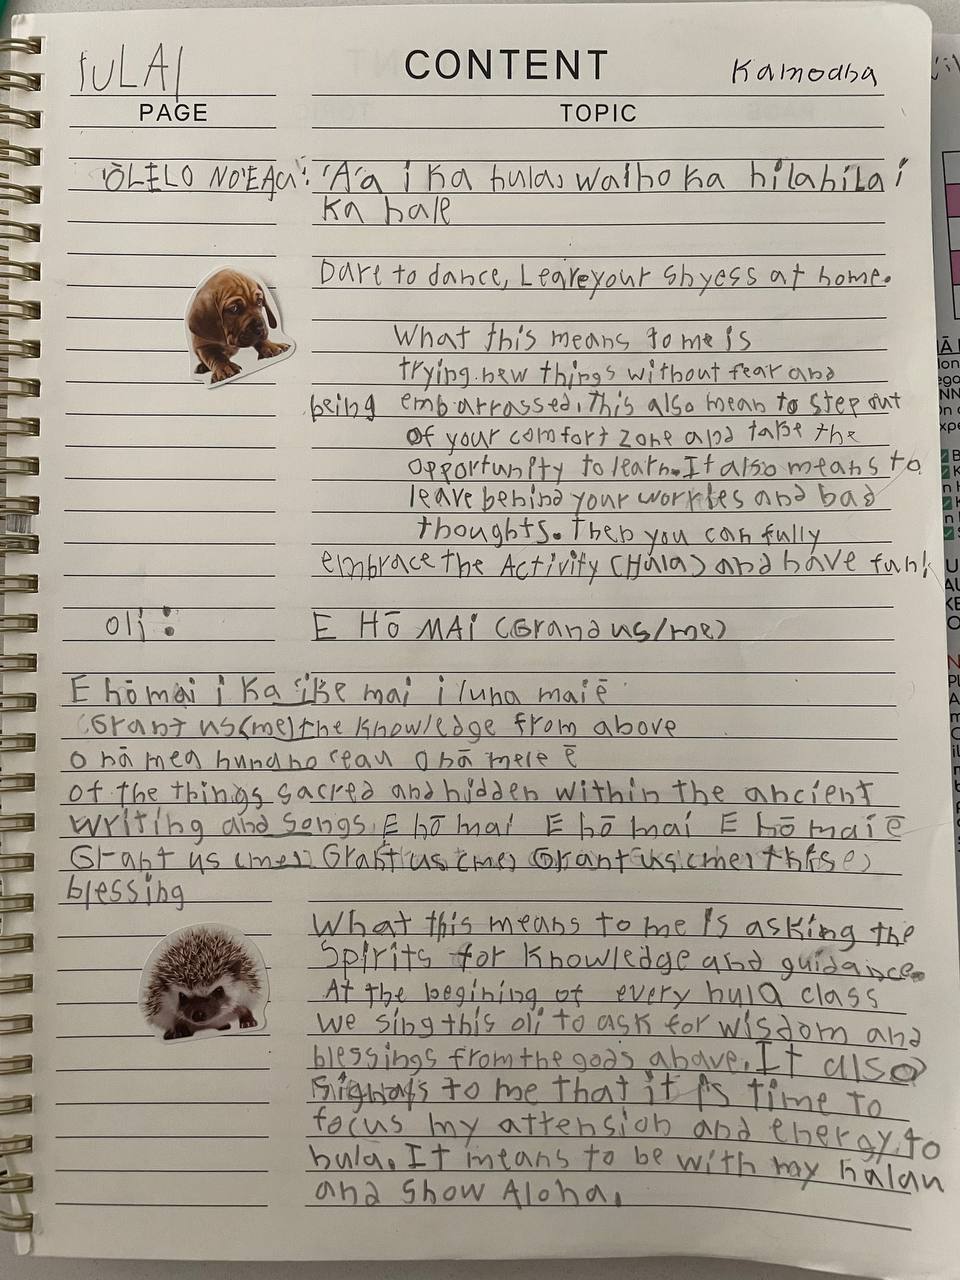 IULAI CONTENT Kamodha
PAGE TOPIC
'ŌLELO NO'EAau: 'A'a i ka hula, waiho ka hilahila i
ka hale
Dare to dance, Leave your shyess at home.
What this means to me is
trying new things without fear and
being embarrassed. this also mean to step out
of your comfort zone and take the
opportunity to learn. It also means to
leave behind your worries and bad
thoughts. Then you can fully
embrace the Activity (Hula) and have fun!
oli: E HŌ MAI (Grand us/me)
E hō mai i ka 'ike mai i luna mai ē
(Grant us(me) the knowledge from above
o nā mea huna no'eau o nā mele ē
of the things sacred and hidden within the ancient
writing and songs. E hō mai E hō mai E hō mai ē
Grant us (me) Grant us (me) Grant us (me) this(e)
blessing
What this means to me is asking the
spirits for knowledge and guidance.
At the begining of every hula class
we sing this oli to ask for wisdom and
blessings from the gods abave. It also
signals to me that it is time to
focus my attension and energy to
hula. It means to be with my halau
and show Aloha.